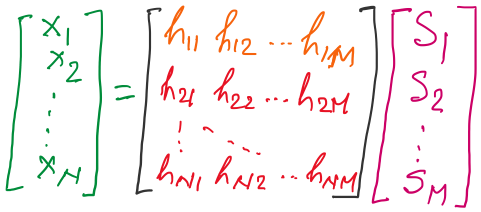 [x₁ x₂ ⋮ x_N] = [h₁₁ h₁₂ ... h₁M; h₂₁ h₂₂ ... h₂M; ⋮ ⋱; h_N1 h_N2 ... h_NM] [S₁ S₂ ⋮ S_M]